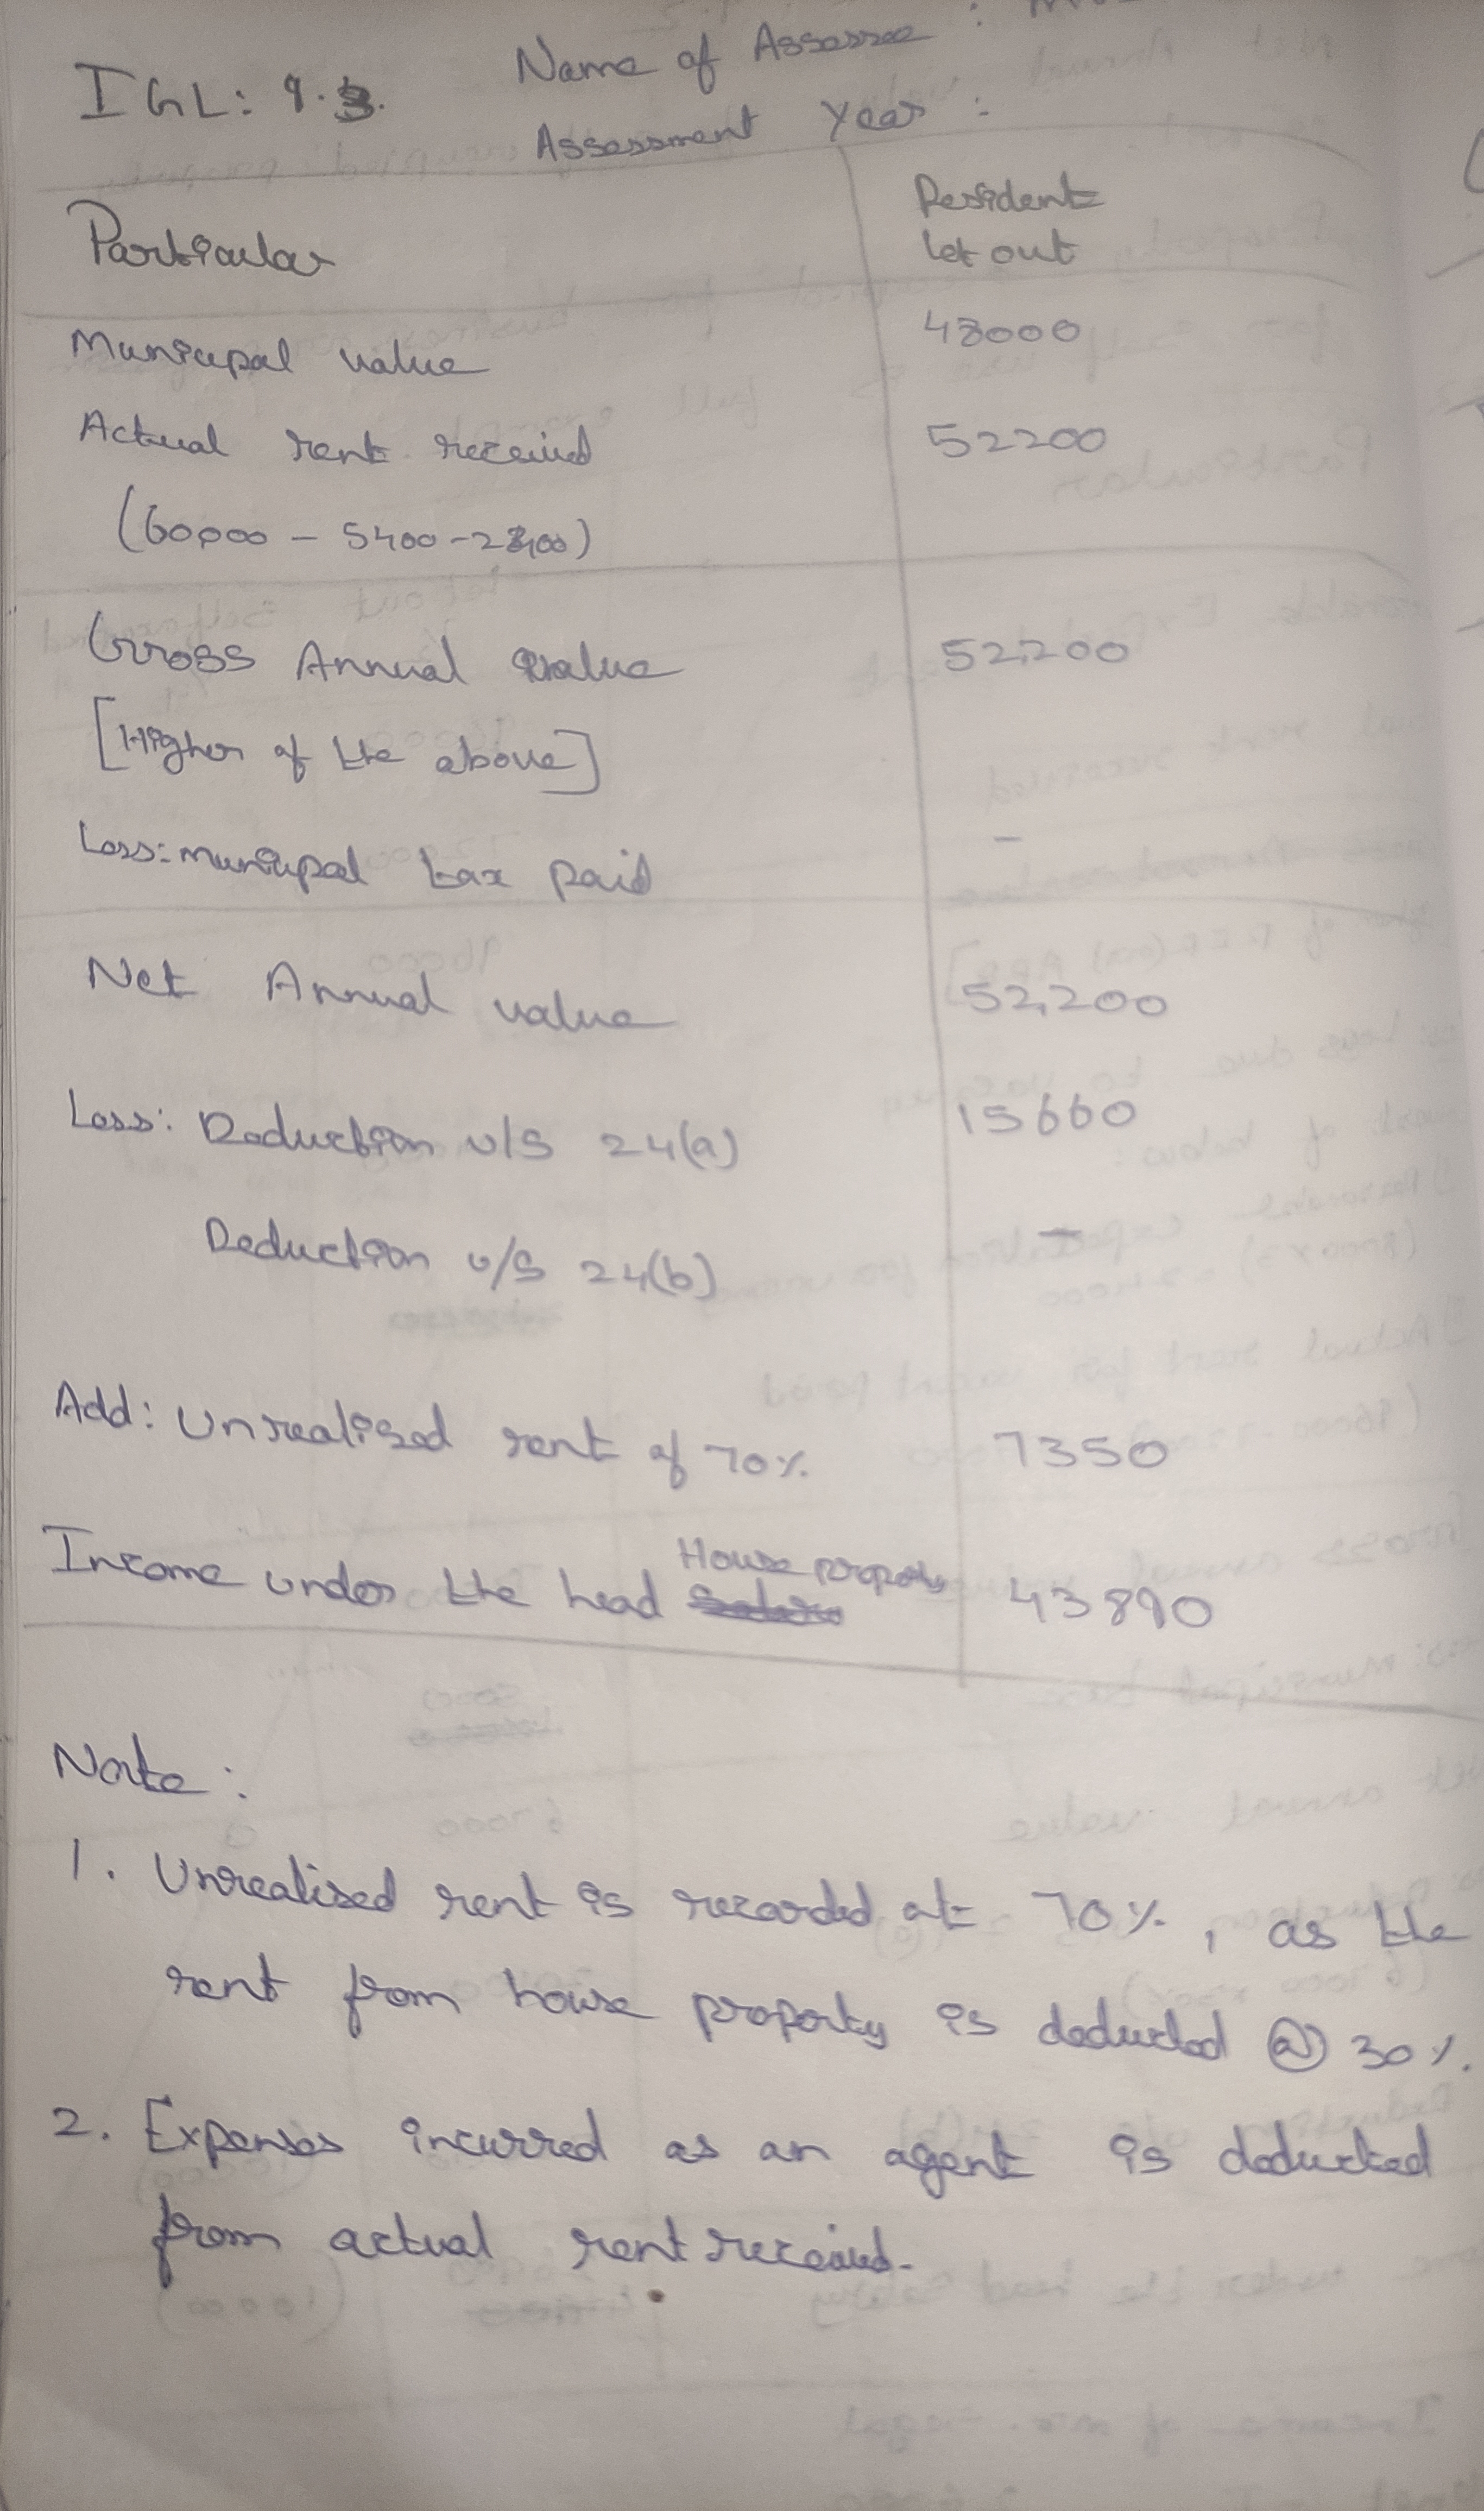 Name of Assessee :
IGL: 9.3.
Assessment Year :
Particular
Resident
let out
Municipal value 48000
Actual rent received 52200
(60000 - 5400 - 2400)
Gross Annual value 52,200
[Higher of the above]
Less: Municipal tax paid -
Net Annual value 52,200
Less: Deduction u/s 24(a) 15660
Deduction u/s 24(b) -
Add: Unrealised rent of 70% 7350
House property
Income under the head 43890
Note :
1. Unrealised rent is recorded at 70%, as the
rent from house property is deducted @ 30%.
2. Expenses incurred as an agent is deducted
from actual rent received.